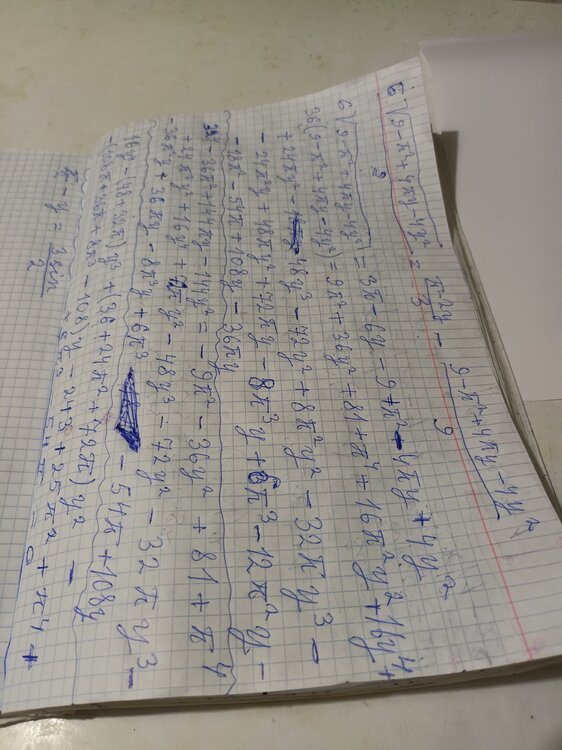 6√(9-π²+4πy-4y²) = (π-2y)/3 - (9-π²+4πy-4y²)/9
6√(9-π²+4πy-4y²) = 3π-6y-9+π²-4πy+4y²
36(9-π²+4πy-4y²) = 9π²+36y²+81+π⁴+16π²y²+16y⁴+
+24πy²-48y³-72y²+8π²y²-32πy³-
-24π²y+48πy²+72πy-8π³y+6π³-12π²y-
-18π²-54π+108y-36πy
324-36π²+144πy-144y² = -9π²-36y²+81+π⁴
+24π²y²+16y⁴+πy²-48y³=72y²-32πy³-
-36π²y+36πy-8π³y+6π³-54π+108y
16y⁴-(48+32π)y³+(36+24π²+72π)y²-
π²+36π+8π³-108)y-243+25π²+π⁴+
+6π³-54π=0